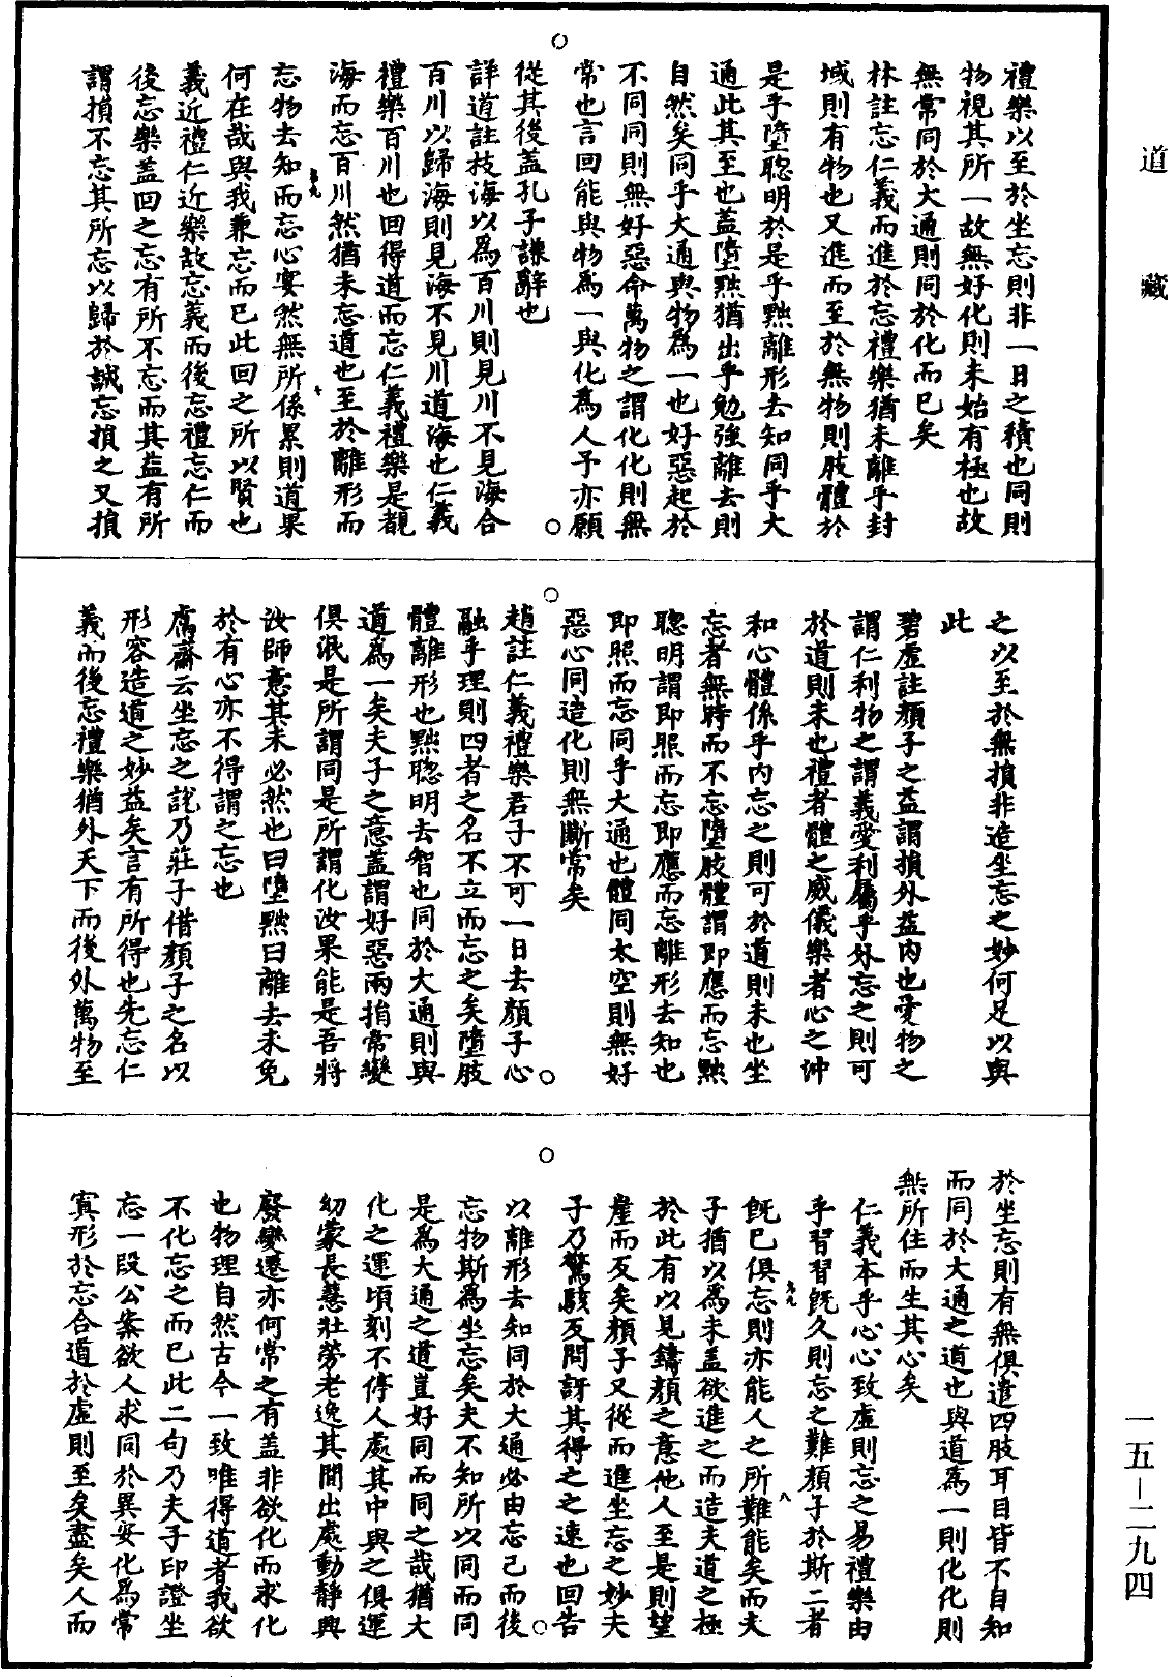 道藏
禮樂以至於坐忘則非一日之積也同則
物視其所一故無好化則未始有極也故
無常同於大通則同於化而已矣
林註忘仁義而進於忘禮樂猶未離乎封
域則有物也又進而至於無物則肢體於
是乎墮聰明於是乎黜離形去知同乎大
通此其至也蓋墮黜猶出乎勉強離去則
自然矣同乎大通與物為一也好惡起於
不同同則無好惡命萬物之謂化化則無
常也言回能與物為一與化為人予亦願
從其後蓋孔子謙辭也
詳道註枝海以為百川則見川不見海合
百川以歸海則見海不見川道海也仁義
禮樂百川也回得道而忘仁義禮樂是覩
海而忘百川然猶未忘道也至於離形而
忘物去知而忘心㝠然無所係累則道果
何在哉與我兼忘而已此回之所以賢也
義近禮仁近樂故忘義而後忘禮忘仁而
後忘樂蓋回之忘有所不忘而其益有所
謂損不忘其所忘以歸於誠忘損之又損
之以至於無損非造坐忘之妙何足以與
此
碧虛註顏子之益謂損外益內也愛物之
謂仁利物之謂義愛利屬乎外忘之則可
於道則未也禮者體之威儀樂者心之沖
和心體係乎內忘之則可於道則未也坐
忘者無時而不忘墮肢體謂即應而忘黜
聰明謂即照而忘即應而忘離形去知也
即照而忘同乎大通也體同太空則無好
惡心同造化則無斷常矣
趙註仁義禮樂君子不可一日去顏子心
融乎理則四者之名不立而忘之矣墮肢
體離形也黜聰明去智也同於大通則與
道為一矣夫子之意蓋謂好惡兩捐常變
俱泯是所謂同是所謂化汝果能是吾將
汝師意其未必然也曰墮黜曰離去未免
於有心亦不得謂之忘也
鬳齋云坐忘之說乃莊子借顏子之名以
形容造道之妙益矣言有所得也先忘仁
義而後忘禮樂猶外天下而後外萬物至
於坐忘則有無俱遣四肢耳目皆不自知
而同於大通之道也與道為一則化化則
無所住而生其心矣
仁義本乎心心致虛則忘之易禮樂由
乎習習既久則忘之難顏子於斯二者
既已俱忘則亦能人之所難能矣而夫
子猶以為未蓋欲進之而造夫道之極
於此有以見鑄顏之意他人至是則望
崖而反矣顏子又從而進坐忘之妙夫
子乃驚駭反問訝其得之之速也回告
以離形去知同於大通必由忘己而後
忘物斯為坐忘矣夫不知所以同而同
是為大通之道豈好同而同之哉猶大
化之運頃刻不停人處其中與之俱運
幼蒙長慧壯勞老逸其間出處動靜興
廢變遷亦何常之有蓋非欲化而求化
也物理自然古今一致唯得道者我欲
不化忘之而已此二句乃夫子印證坐
忘一段公案欲人求同於異安化為常
寘形於忘合道於虛則至矣盡矣人而
一五－二九四